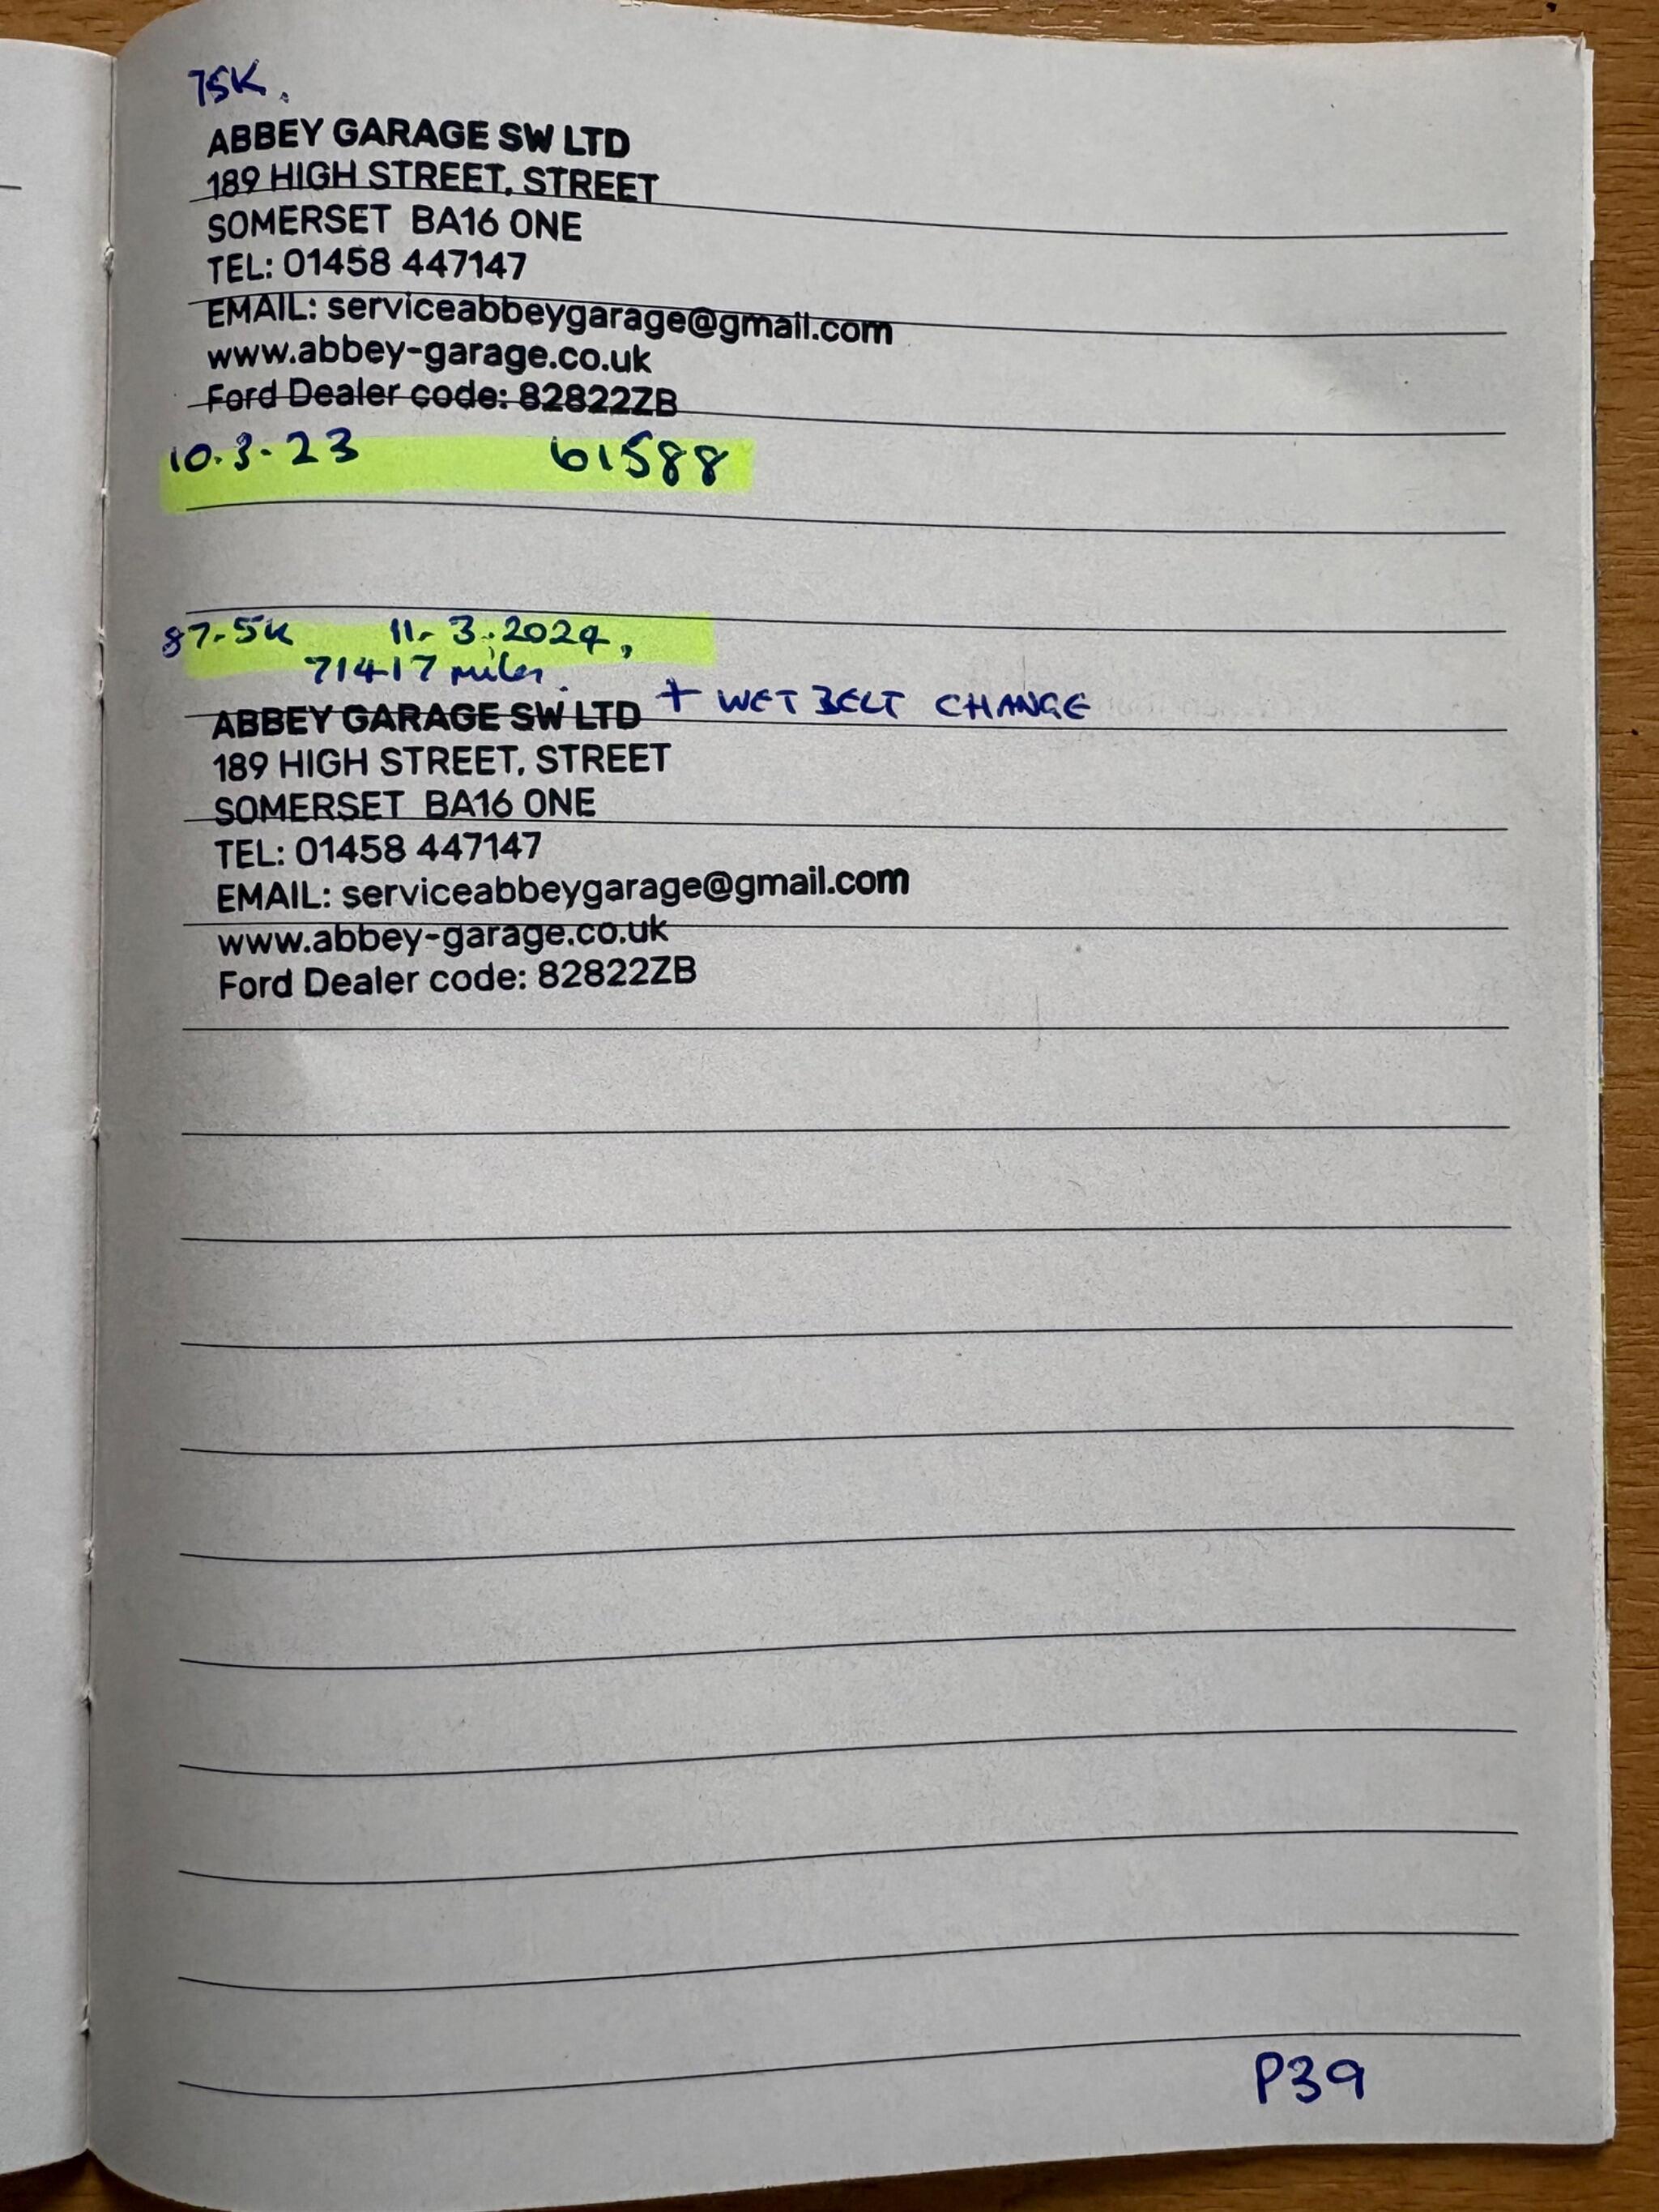 75K.
ABBEY GARAGE SW LTD
189 HIGH STREET, STREET
SOMERSET BA16 0NE
TEL: 01458 447147
EMAIL: serviceabbeygarage@gmail.com
www.abbey-garage.co.uk
Ford Dealer code: 82822ZB
10.3.23 61588
87.5K 11.3.2024,
71417 miles.
ABBEY GARAGE SW LTD + WET BELT CHANGE
189 HIGH STREET, STREET
SOMERSET BA16 0NE
TEL: 01458 447147
EMAIL: serviceabbeygarage@gmail.com
www.abbey-garage.co.uk
Ford Dealer code: 82822ZB
P39